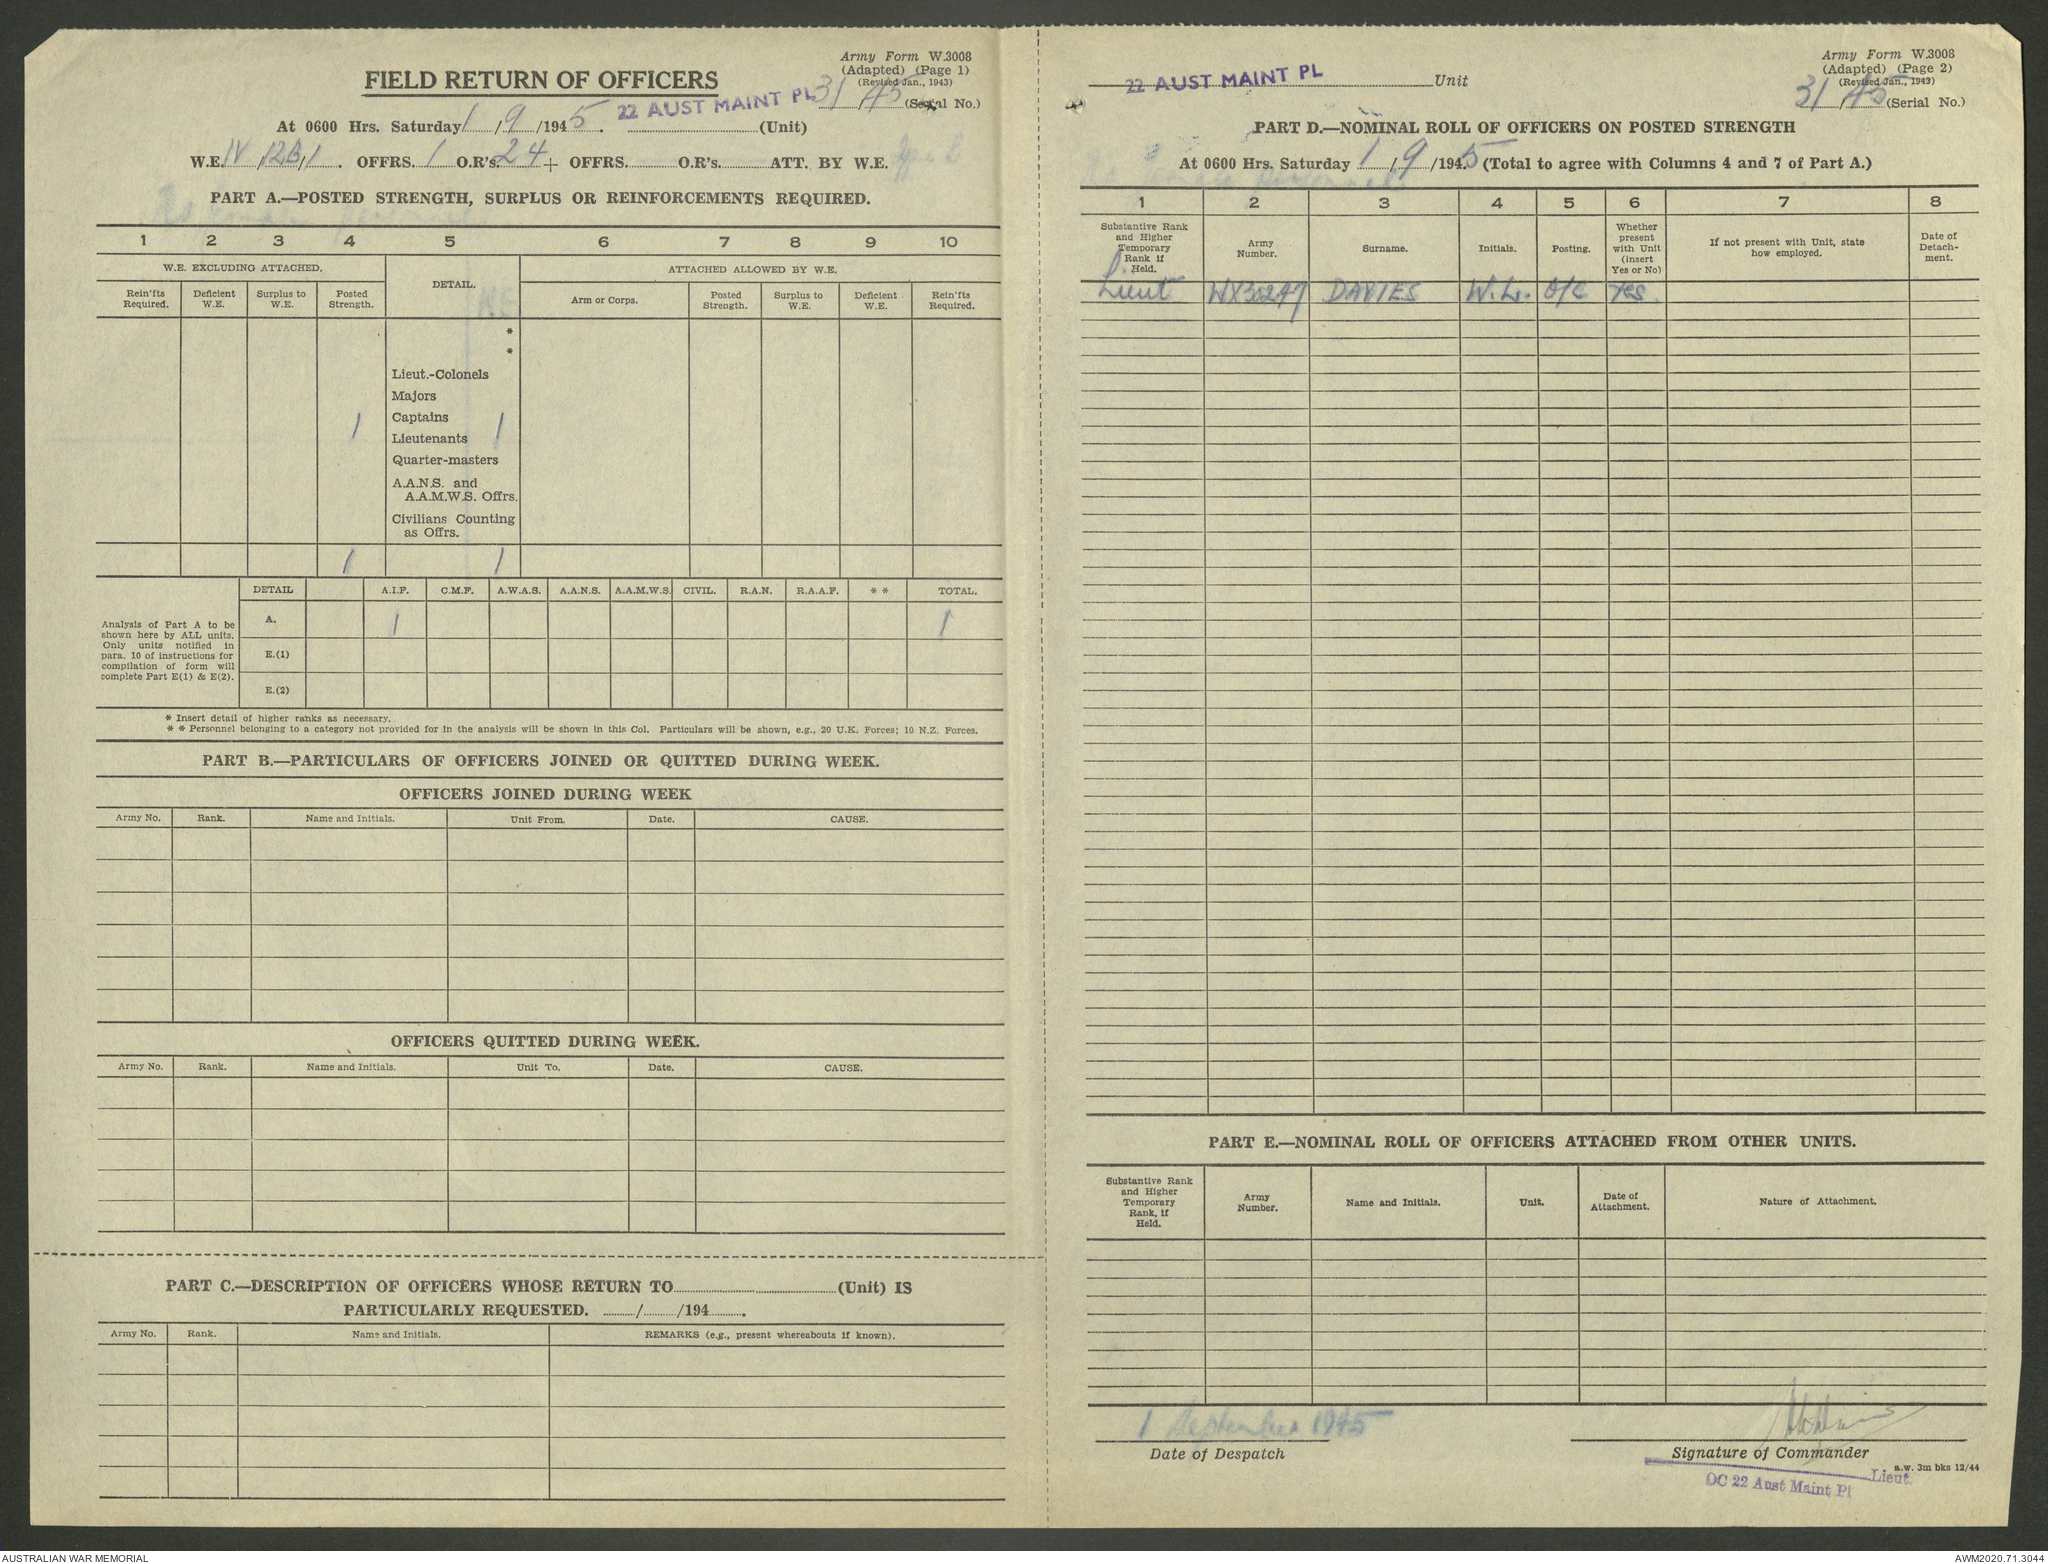 Army Form W.3008
(Adapted) (Page 1)
(Revised Jan., 1943)
31/45 (Serial No.)
FIELD RETURN OF OFFICERS
22 AUST MAINT PL
At 0600 Hrs. Saturday 1/9/1945. (Unit)
W.E. IV/12B/1. OFFRS. 1 O.R's. 24 + OFFRS. O.R's. ATT. BY W.E.
PART A.—POSTED STRENGTH, SURPLUS OR REINFORCEMENTS REQUIRED.
1 2 3 4 5 6 7 8 9 10
W.E. EXCLUDING ATTACHED. DETAIL. ATTACHED ALLOWED BY W.E.
Rein'fts Required. Deficient W.E. Surplus to W.E. Posted Strength. Arm or Corps. Posted Strength. Surplus to W.E. Deficient W.E. Rein'fts Required.
*
*
Lieut.-Colonels
Majors
Captains
1 Lieutenants 1
Quarter-masters
A.A.N.S. and
A.A.M.W.S. Offrs.
Civilians Counting
as Offrs.
1 1
DETAIL A.I.F. C.M.F. A.W.A.S. A.A.N.S. A.A.M.W.S. CIVIL. R.A.N. R.A.A.F. * * TOTAL.
Analysis of Part A to be
shown here by ALL units.
Only units notified in
para. 10 of instructions for
compilation of form will
complete Part E(1) & E(2).
A. 1 1
E.(1)
E.(2)
* Insert detail of higher ranks as necessary.
* * Personnel belonging to a category not provided for in the analysis will be shown in this Col. Particulars will be shown, e.g., 20 U.K. Forces; 10 N.Z. Forces.
PART B.—PARTICULARS OF OFFICERS JOINED OR QUITTED DURING WEEK.
OFFICERS JOINED DURING WEEK
Army No. Rank. Name and Initials. Unit From. Date. CAUSE.
OFFICERS QUITTED DURING WEEK.
Army No. Rank. Name and Initials. Unit To. Date. CAUSE.
PART C.—DESCRIPTION OF OFFICERS WHOSE RETURN TO (Unit) IS
PARTICULARLY REQUESTED. / /194 .
Army No. Rank. Name and Initials. REMARKS (e.g., present whereabouts if known).
Army Form W.3008
(Adapted) (Page 2)
(Revised Jan., 1943)
31/45 (Serial No.)
22 AUST MAINT PL Unit
PART D.—NOMINAL ROLL OF OFFICERS ON POSTED STRENGTH
At 0600 Hrs. Saturday 1/9/1945 (Total to agree with Columns 4 and 7 of Part A.)
1 2 3 4 5 6 7 8
Substantive Rank and Higher Temporary Rank if Held. Army Number. Surname. Initials. Posting. Whether present with Unit (insert Yes or No) If not present with Unit, state how employed. Date of Detach-ment.
Lieut WX30247 DAVIES W.L. O/C Yes.
PART E.—NOMINAL ROLL OF OFFICERS ATTACHED FROM OTHER UNITS.
Substantive Rank and Higher Temporary Rank, if Held. Army Number. Name and Initials. Unit. Date of Attachment. Nature of Attachment.
1 September 1945
Date of Despatch
Signature of Commander
a.w. 3m bks 12/44
Lieut.
OC 22 Aust Maint Pl
AUSTRALIAN WAR MEMORIAL
AWM2020.71.3044